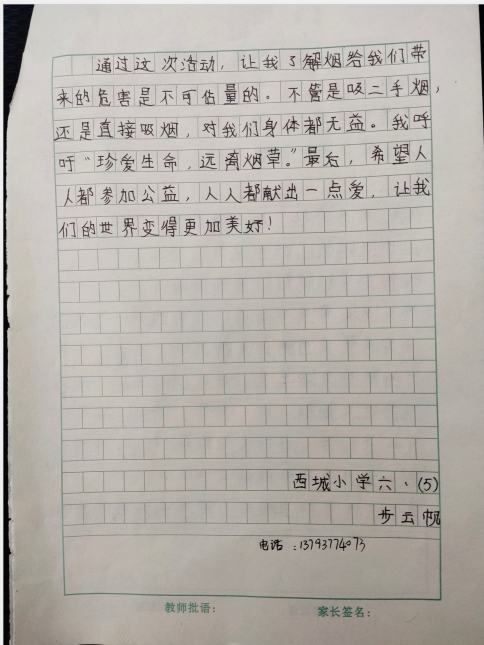 通过这次活动，让我了解烟给我们带
来的危害是不可估量的。不管是吸二手烟，
还是直接吸烟，对我们身体都无益。我呼
吁“珍爱生命，远离烟草。”最后，希望人
人都参加公益，人人都献出一点爱，让我
们的世界变得更加美好！
西城小学六、(5)
步云帆
电话：13793774073
教师批语： 家长签名：